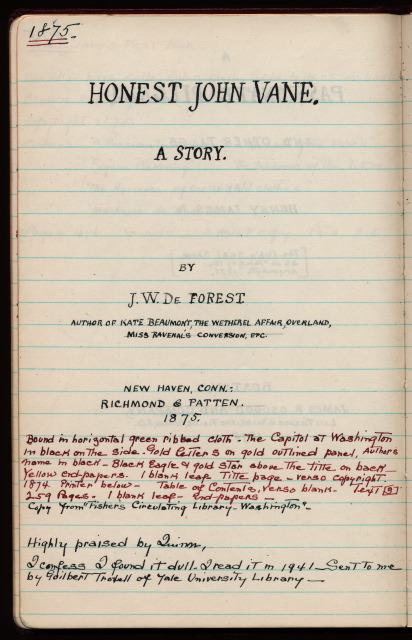 1875.
HONEST JOHN VANE.
A STORY.
BY
J. W. DE FOREST
AUTHOR OF KATE BEAUMONT, THE WETHEREL AFFAIR, OVERLAND,
MISS RAVENAL'S CONVERSION, ETC.
NEW HAVEN, CONN.:
RICHMOND & PATTEN.
1875.
Bound in horizontal green ribbed cloth - The Capitol at Washington
in black on the side. Gold letters on gold outlined panel, Authors
name in black - Black Eagle & gold star above the title on back
Yellow end-papers. 1 blank leaf Title page - verso copyright.
1874 Printer below - Table of Contents, verso blank - Text [5]
259 Pages - 1 blank leaf - end-papers -
Copy from "Fishers Circulating Library - Washington" -
Highly praised by Quinn,
I confess I found it dull. I read it in 1941 - Sent to me
by Gilbert Troxell of Yale University Library -